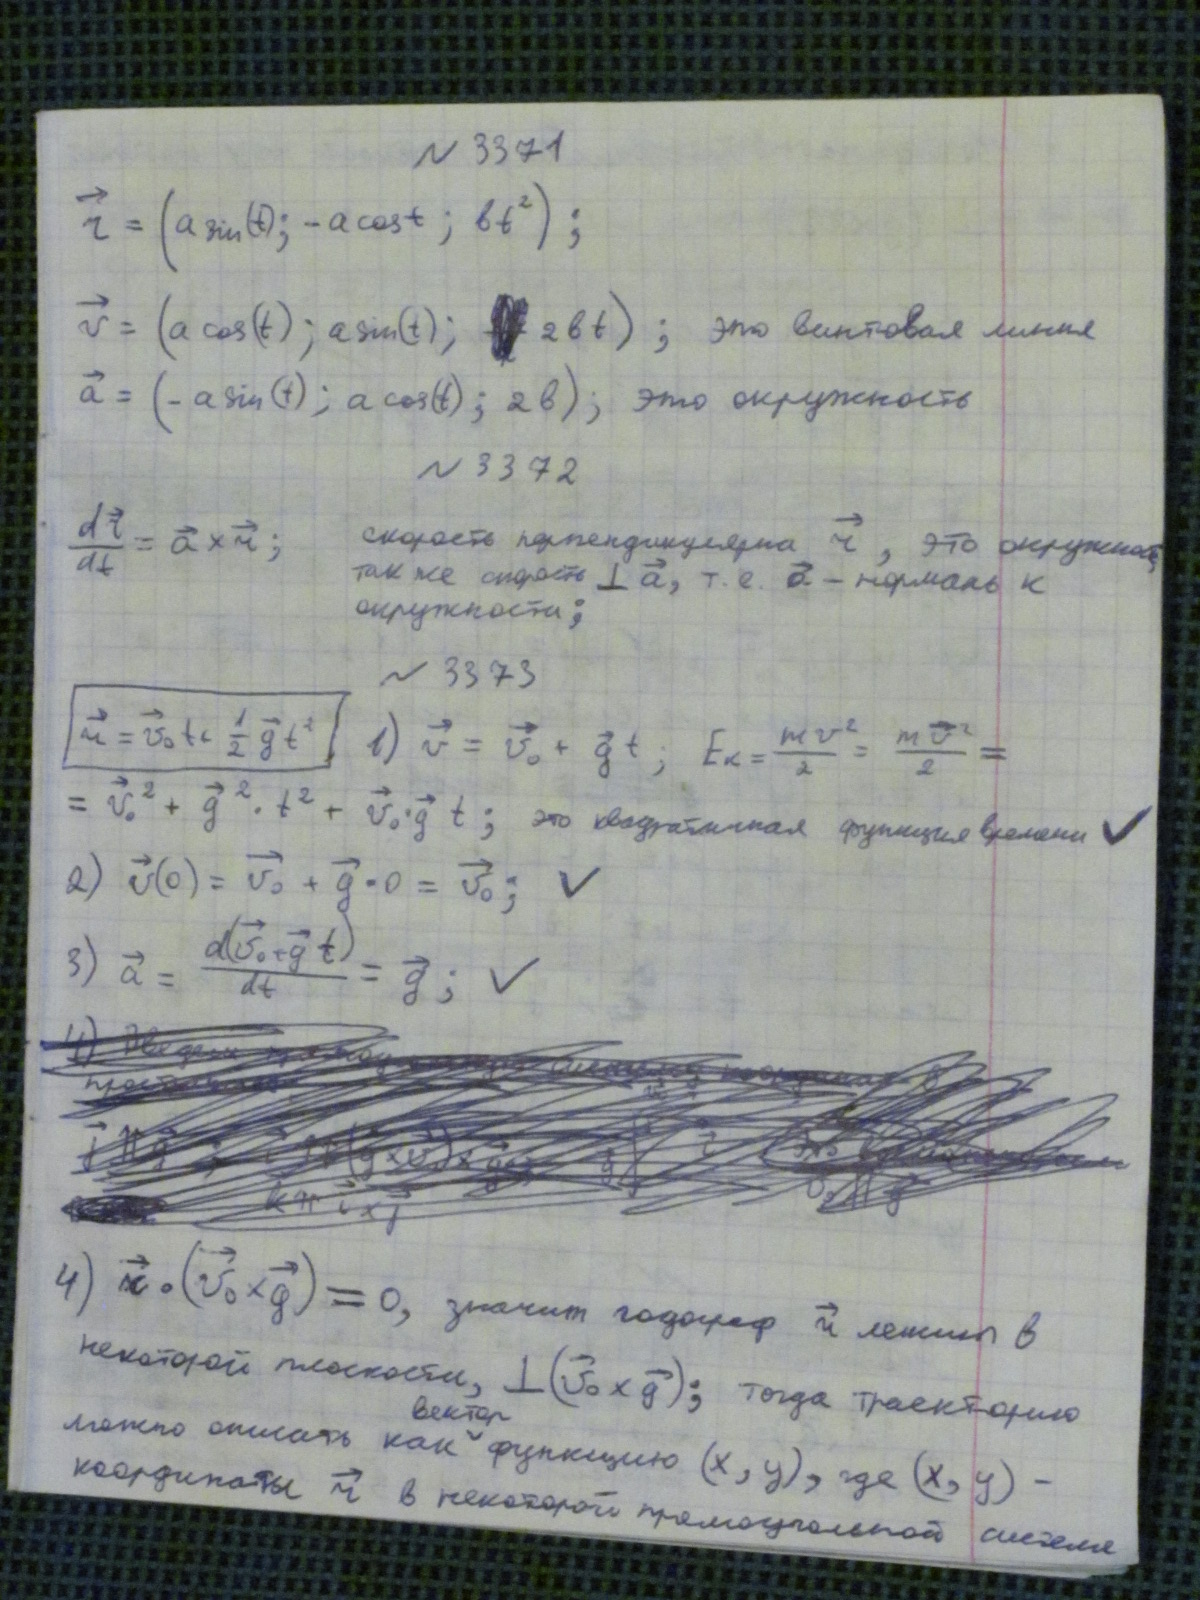 ~ 3371
r⃗ = (a sin(t); -a cos t; bt²);
v⃗ = (a cos(t); a sin(t); 2bt); это винтовая линия
a⃗ = (-a sin(t); a cos(t); 2b); это окружность
~ 3372
dr⃗/dt = a⃗ × r⃗; скорость перпендикулярна r⃗, это окружность,
так же скорость ⊥ a⃗, т.е. a⃗ - нормаль к
окружности;
~ 3373
r⃗ = v⃗₀t + 1/2 g⃗t² 1) v⃗ = v⃗₀ + g⃗t; Eк = mv²/2 = mv⃗²/2 =
= v⃗₀² + g⃗²·t² + v⃗₀·g⃗ t; это квадратичная функция времени ✓
2) v⃗(0) = v⃗₀ + g⃗·0 = v⃗₀; ✓
3) a⃗ = d(v⃗₀+g⃗t)/dt = g⃗; ✓
4) r⃗·(v⃗₀×g⃗) = 0, значит годограф r⃗ лежит в
некоторой плоскости, ⊥(v⃗₀×g⃗); тогда траекторию
можно описать как вектор функцию (x, y), где (x, y) -
координаты r⃗ в некоторой прямоугольной системе